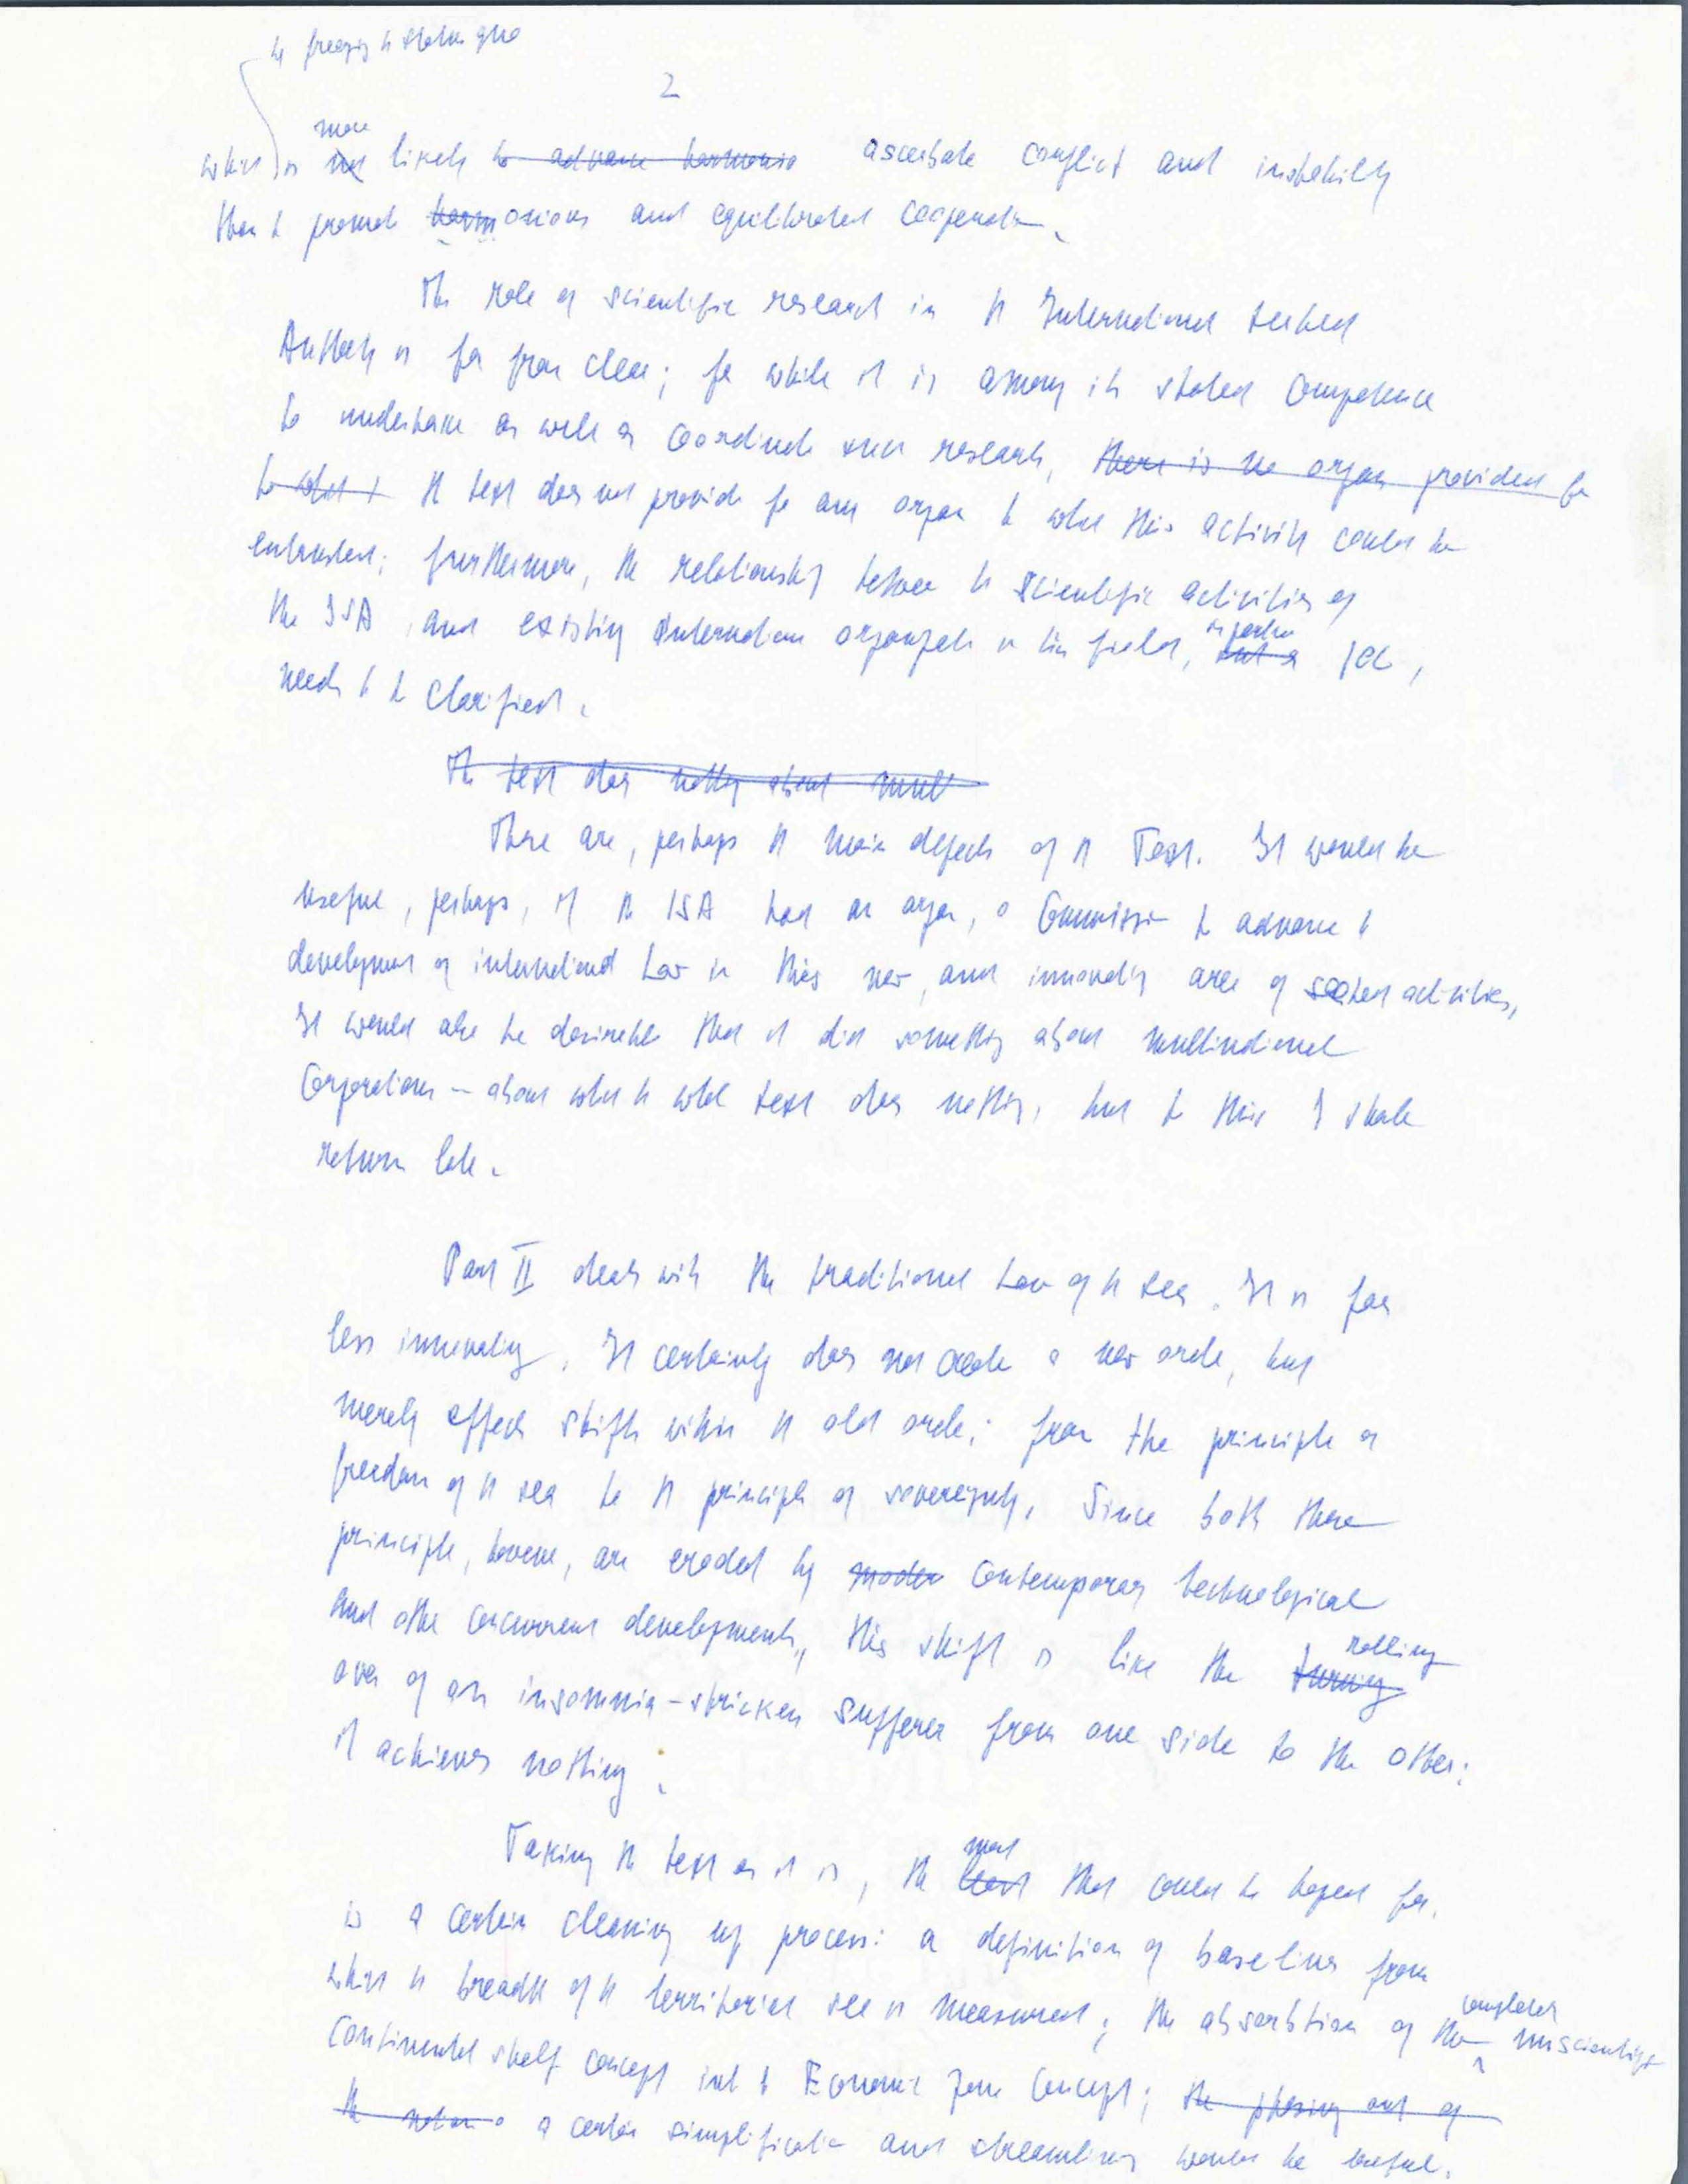 by freezing the status quo
2
more
which is not likely to advance harmonio ascerbate conflict and instability
than to promote harmonious and equilibrated cooperation.
The role of scientific research in the International Seabed
Authority is far from clear; for while it is among its stated competence
to undertake as well as coordinate such research, there is no organ provided for
to what t the text does not provide for any organ to which this activity could be
entrusted; furthermore, the relationship between the scientific activities of
the ISA, and existing international organizations in this field,
needs to be clarified.
The text does nothing about mult
These are, perhaps the main defects of the Text. It would be
useful, perhaps, if the ISA had an organ, a Commission to advance the
development of international Law in this new, and innovating area of seabed activities,
It would also be desirable that it did something about multinational
Corporations — about which the whole text does nothing, but to this I shall
return later.
Part II deals with the traditional Law of the sea. It is far
less innovating. It certainly does not create a new order, but
merely effects shifts within the old order; from the principle of
freedom of the sea to the principle of sovereignty. Since both these
principles, however, are eroded by modern contemporary technological
and other concurrent developments, this shift is like the turning
rolling
over of an insomnia-stricken sufferer from one side to the other:
it achieves nothing.
most
Taking the text as it is, the that could be hoped for,
is a certain cleaning up process: a definition of baselines from
which the breadth of the territorial sea is measured; the absorbtion of the completely unscientific
Continental shelf concept into the Economic Zone Concept; the phasing out of
the notion o a certain simplification and streamlining would be useful.